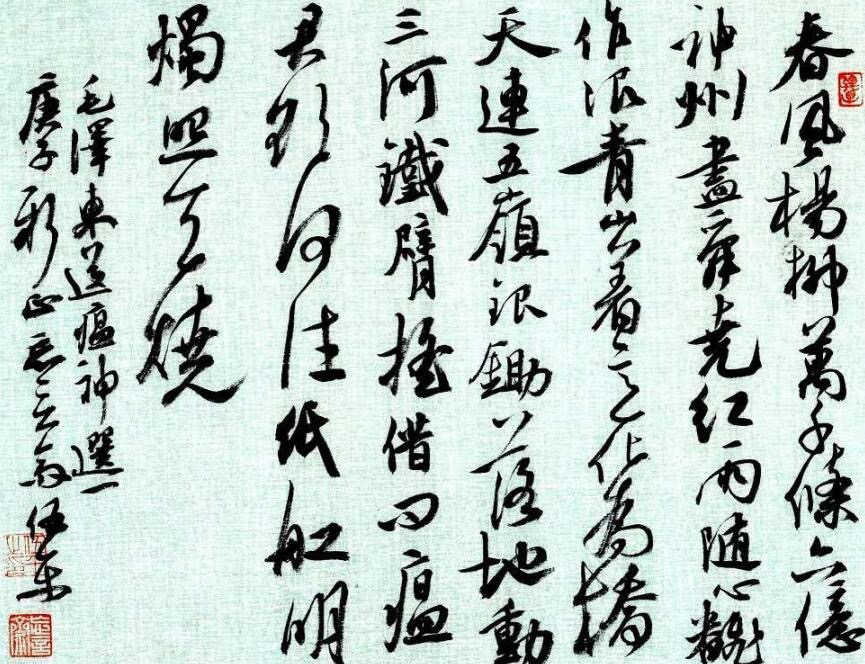 春風楊柳萬千條六億
神州盡舜堯紅雨隨心翻
作浪青山着意化為橋
天連五嶺銀鋤落地動
三河鐵臂搖借問瘟
君欲何往紙船明
燭照天燒
毛澤東送瘟神選一
庚子新正